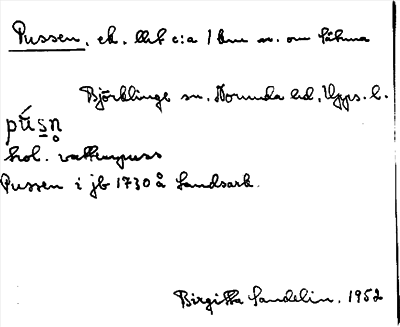 Pussen, ek. llet c:a 1 km n. om Låkma
Björklinge sn. Norunda hd, Upps. l.
pús̲n̥
hol. vattenpuss
Pussen i jb 1730 å Landsark.
Birgitta Sandelin. 1952